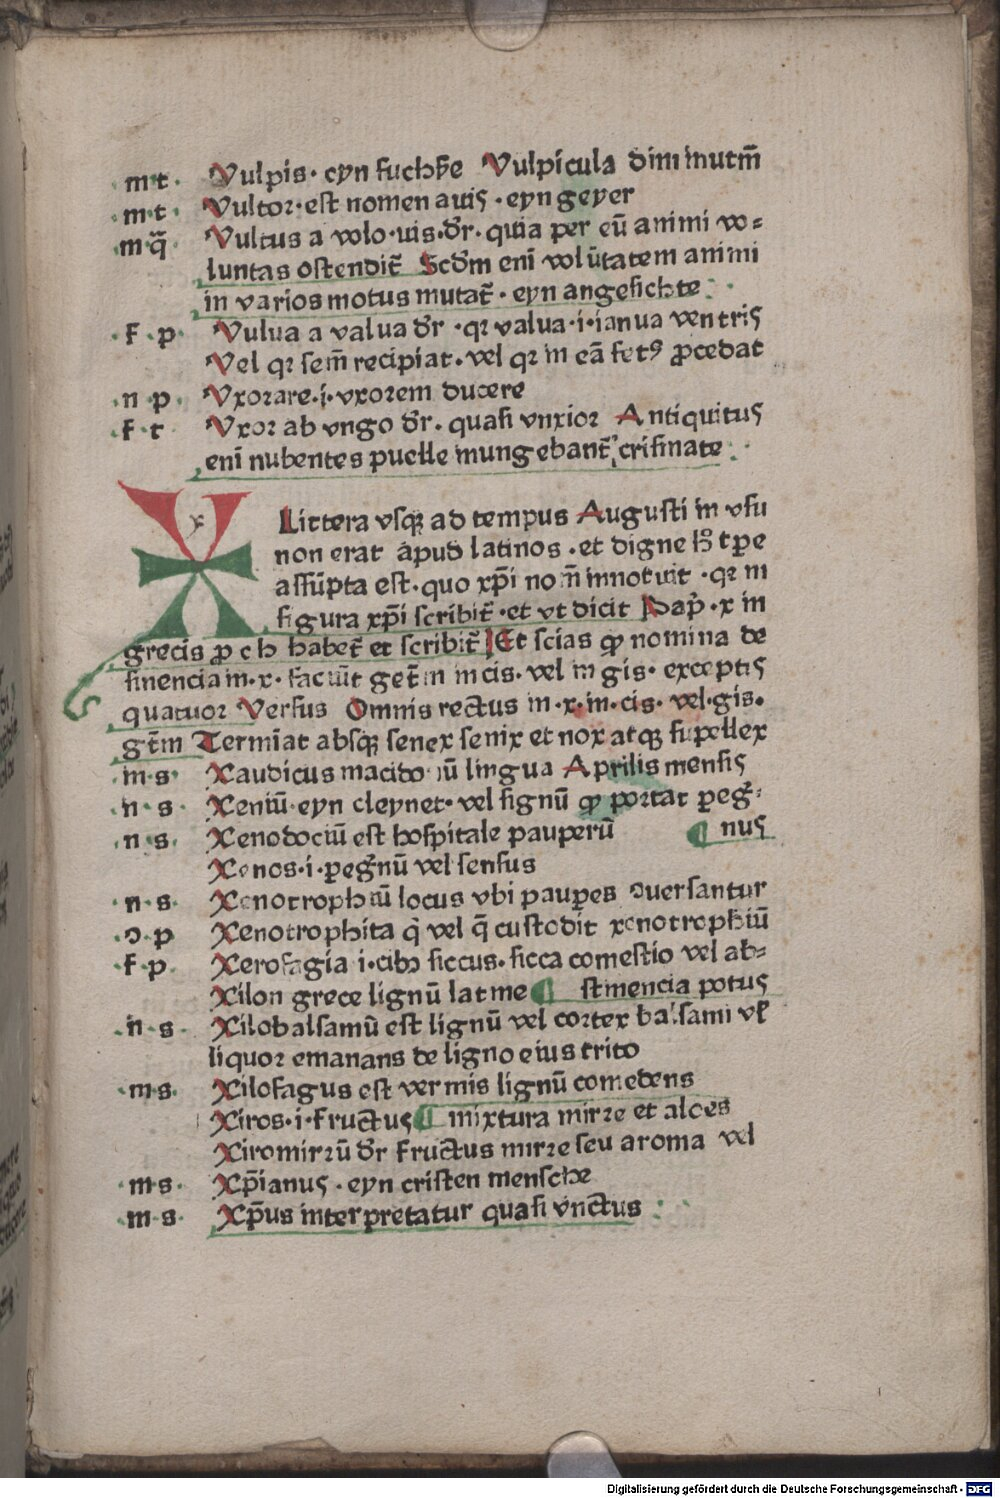 m t · Vulpis · eyn fuchße Vulpicula diminutm̄
m t · Vultor · est nomen auis · eyn geyer
m q̄ Vultus a volo · uis · dr̄ · quia per eū animi vo=
luntas ostendit̄ Scd̄m eni vol ūtatem animi
in varios motus mutat̄ · eyn angesichte
· f · p · Vulua a valua dr̄ · qꝛ valua · i · ianua ventris
Vel qꝛ sem̄ recipiat · vel qꝛ in eā fetꝰ ꝓcedat
· n p · Vxorare · i · vxorem ducere
· f · t Vxor ab vngo dr̄ · quasi vnxior Antiquitus
eni nubentes puelle inungebant̄ crisinate
x Littera vsqꝫ ad tempus Augusti in vsu
non erat apud latinos · et digne tꝑe
assūpta est · quo xp̄i nom̄ innotuit · qꝛ in
figura xp̄i scribit̄ · et vt dicit Pap̄ · x in
grecis ꝓ c h habet̄ et scribit̄ Et scias ꝙ nomina de
sinencia in · x · faciūt get̄m in cis · vel in gis · exceptis
quatuor Versus Omnis rectus in · x · in · cis · vel · gis ·
gt̄m Termīat absqꝫ senex senix et nox atqꝫ supellex
· m · s · Xaudicus macidonū lingua Aprilis mensis
· n · s · Xeniū · eyn cleynet · vel signū ꝙ portat ꝑeḡ=
· n · s · Xenodociū est hospitale pauperū ¶ nus
Xenos · i · ꝑegͥnū vel sensus
· n · s · Xenotrophiū locus vbi pauꝑes ↄuersantur
· ↄ · p Xenotrophita qͥ vel q̄ custodit xenotrophiū
· f · p · Xerofagia i · cibꝰ siccus · sicca comestio vel ab=
Xilon grece lignū latine ¶ stinencia potus
· n · s · Xilobalsamū est lignū vel cortex balsami vl̄
liquor emanans de ligno eius trito
· m s · Xilofagus est vermis lignū comedens
Xiros · i · fructus ¶ mixtura mirre et aloes
Xiromirrū dr̄ fructus mirre seu aroma vel
· m s · Xp̄ianus · eyn cristen mensche
· m · s · Xp̄us interpretatur quasi vnctus
Digitalisierung gefördert durch die Deutsche Forschungsgemeinschaft - DFG